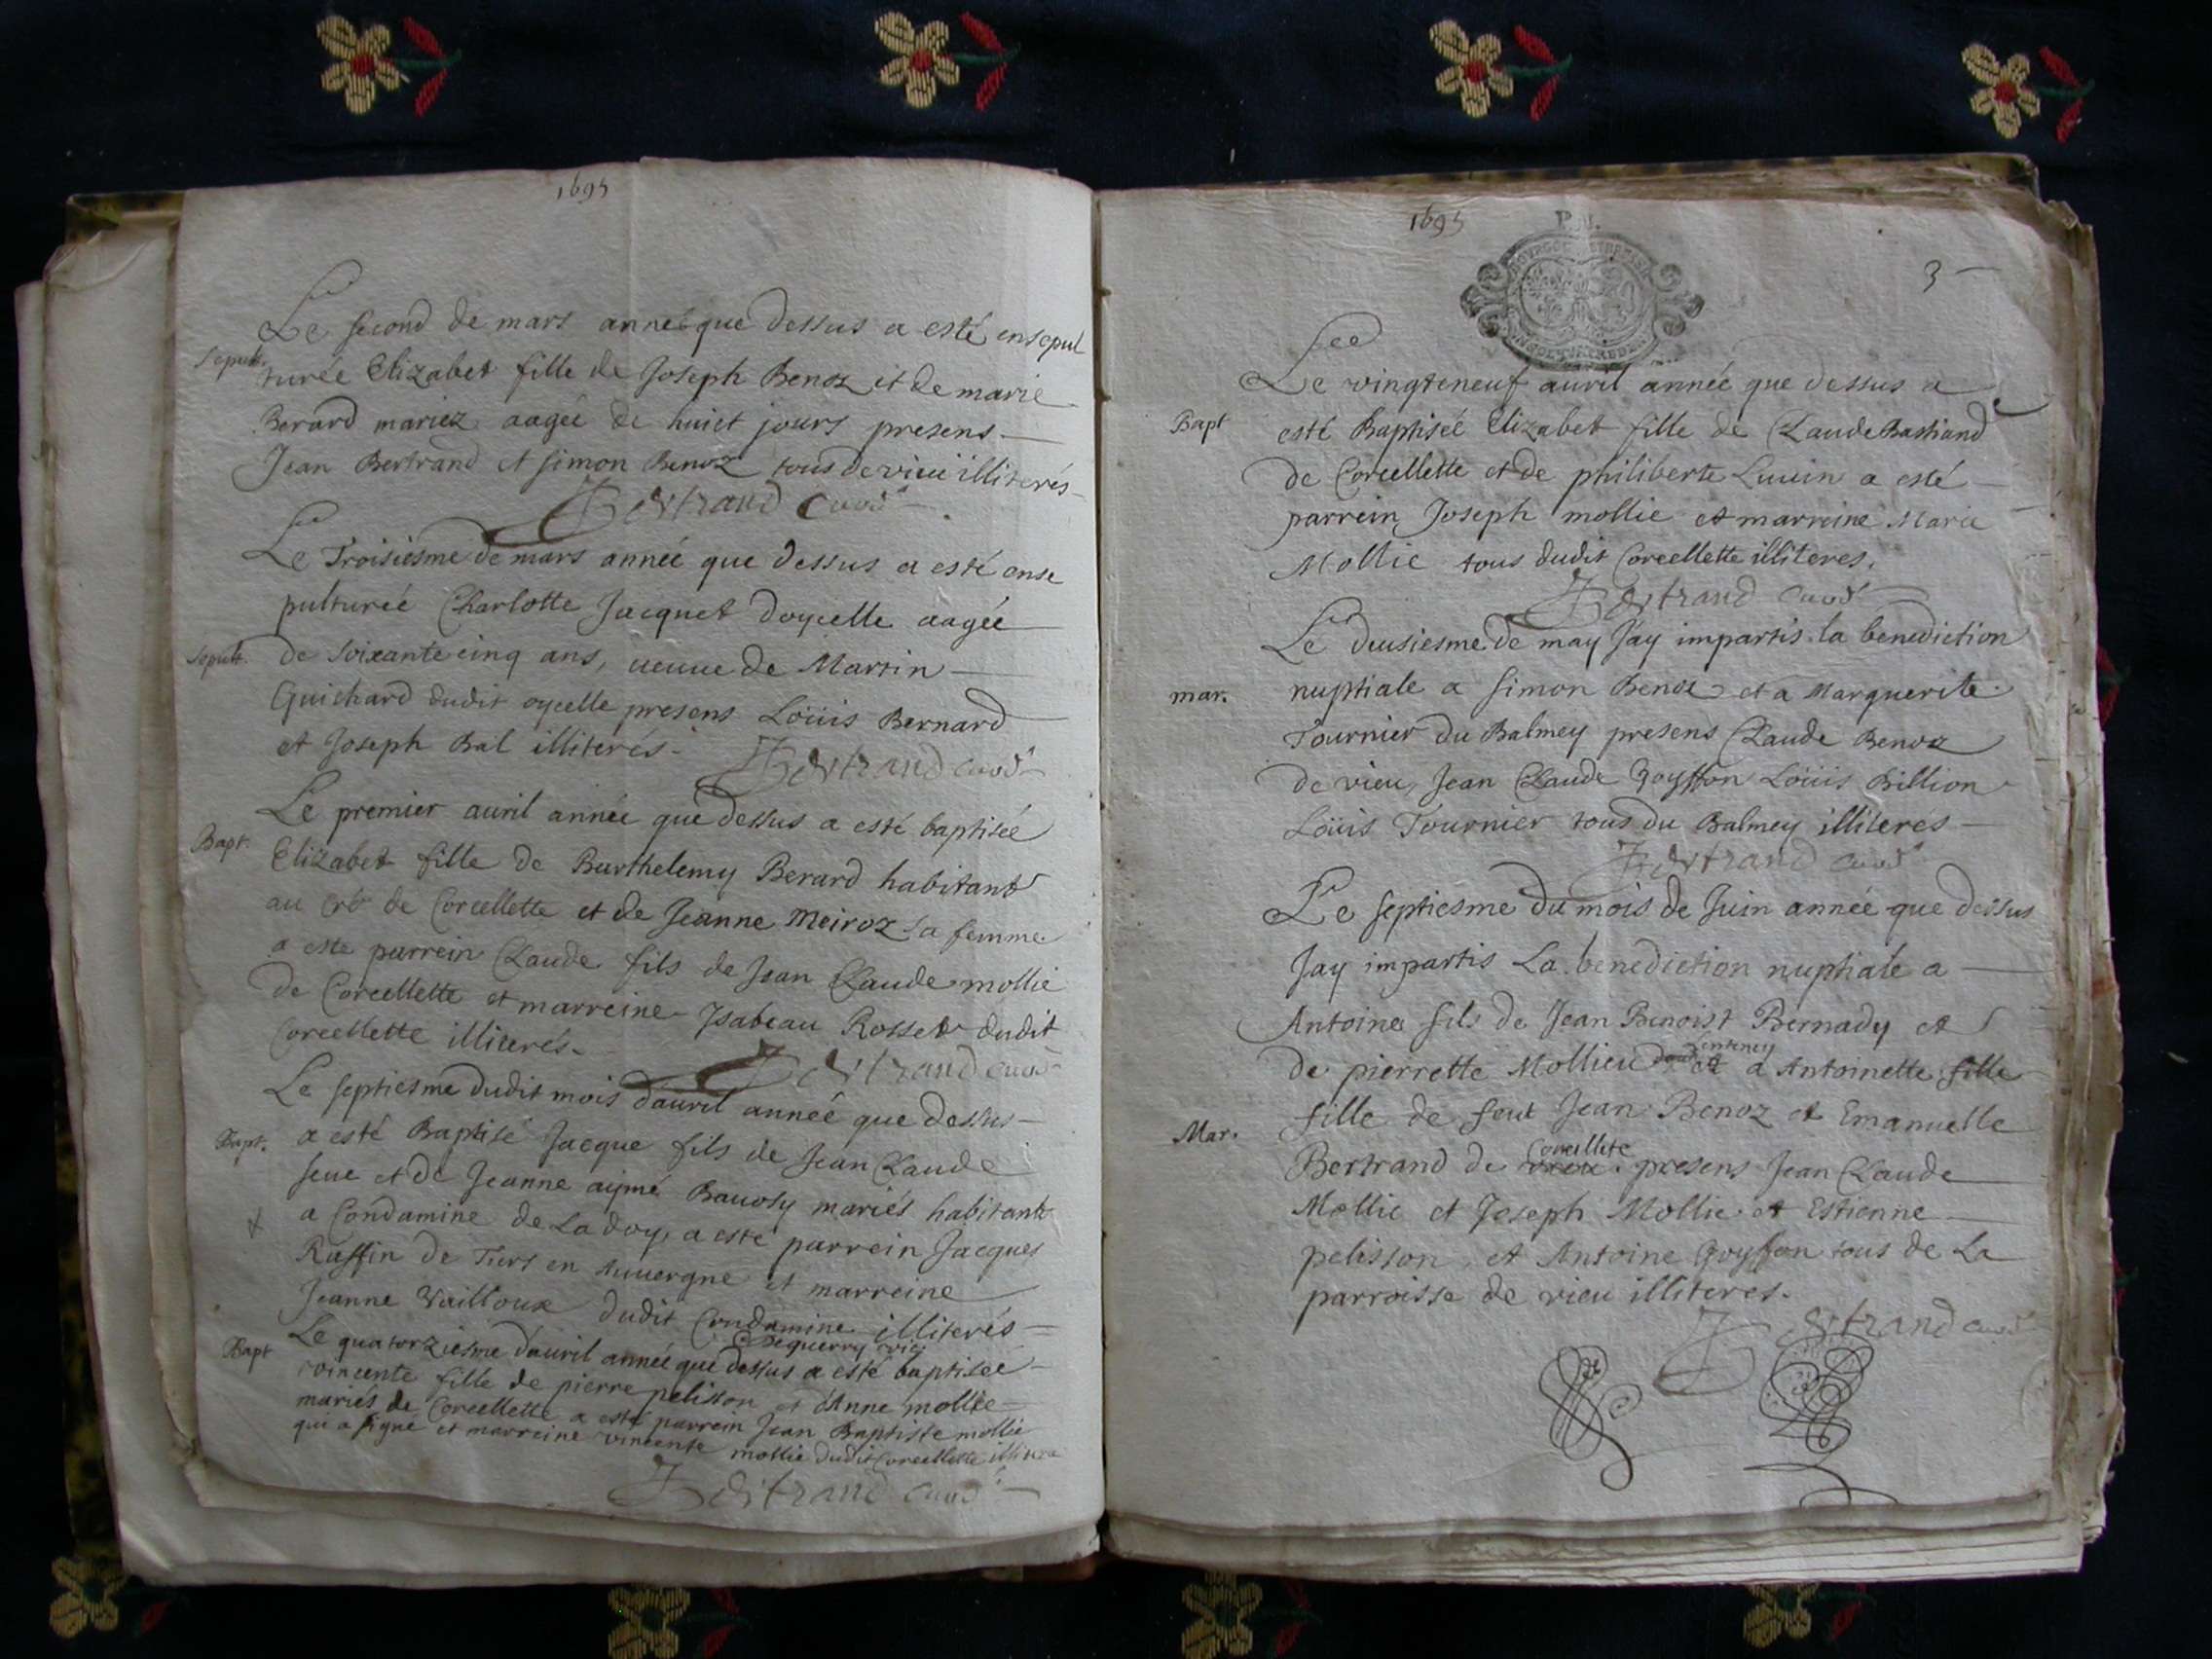 1695
Le second de mars anneé que dessus a esté ensepul
Sepult. tureé Elizabet fille de Joseph Benoz et de marie
Berard mariez aageé de huict jours presens
Jean Bertrand et simon Benoz tous de vieu illiterés
Bertrand curé
Le Troisiesme de mars anneé que dessus a esté ense
pultureé Charlotte Jacquet doycelle aageé
Sepult. de soixante cinq ans, ueuue de Martin
Guichard dudit oycelle presens Loüis Bernard
et Joseph Bal illiterés.
Bertrand curé
Le premier auril anneé que dessus a esté baptiseé
Bapt. Elizabet fille de Barthelemy Berard habitant
au de Corcellette et de Jeanne Meiroz sa femme
a este parrein Claude fils de Jean Claude mollie
de Corcellette et marreine Isabeau Rosset dudit
Corcellette illiterés.
Bertrand curé
Le septiesme dudit mois d'auril anneé que dessus
Bapt. a esté Baptisé Jacque fils de Jean Claude
seue et de Jeanne aymé mariés habitants
a Condamine de La doy, a esté parrein Jacques
Ruffin de Tiers en Auuergne et marreine
Jeanne dudit Condamine illiterés
Dequerry vic
Bapt Le quatorziesme d'auril anneé que dessus a esté baptiseé
vincente fille de pierre pelisson et d'Anne mollie
mariés de Corcellette a esté parrein Jean Baptiste mollie
qui a signé et marreine vincente mollie dudit Corcellette
Bertrand curé
1695
3
Le vingteneuf auril anneé que dessus a
Bapt esté Baptiseé Elizabet fille de Claude Bastiand
de Corcellette et de philiberte Luuin a esté
parrein Joseph mollie et marreine Marie
Mollie tous dudit Corcellette illiteres.
Bertrand curé
Le deusiesme de may Jay impartis la benediction
mar. nuptiale a simon Benoz et a Marguerite
Tournier du Balmey presens Claude Benoz
de vieu, Jean Claude Goyffon Loüis Billion
Loüis Tournier tous du Balmey illiteres
Bertrand curé
Le septiesme du mois de Juin anneé que dessus
Jay impartis La benediction nuptiale a
Antoine fils de Jean Benoist Bernady et
de pierrette Mollieu a Antoinette fille
Mar. fille de feut Jean Benoz et Emanuelle
Corcellete
Bertrand de presens Jean Claude
Mollie et Joseph Mollie et Estienne
pelisson, et Antoine Goyffon tous de La
parroisse de vieu illiteres.
Bertrand curé